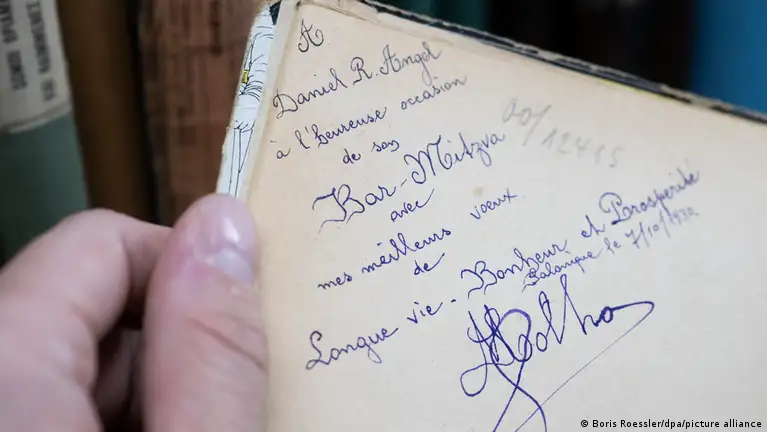 A
Daniel R. Angel
à l'heureuse occasion
de son
Bar-Mitzva
avec
mes meilleurs voeux
de
Longue vie - Bonheur et Prosperité
Salonique le 7/10/1930
00/12415
© Boris Roessler/dpa/picture alliance